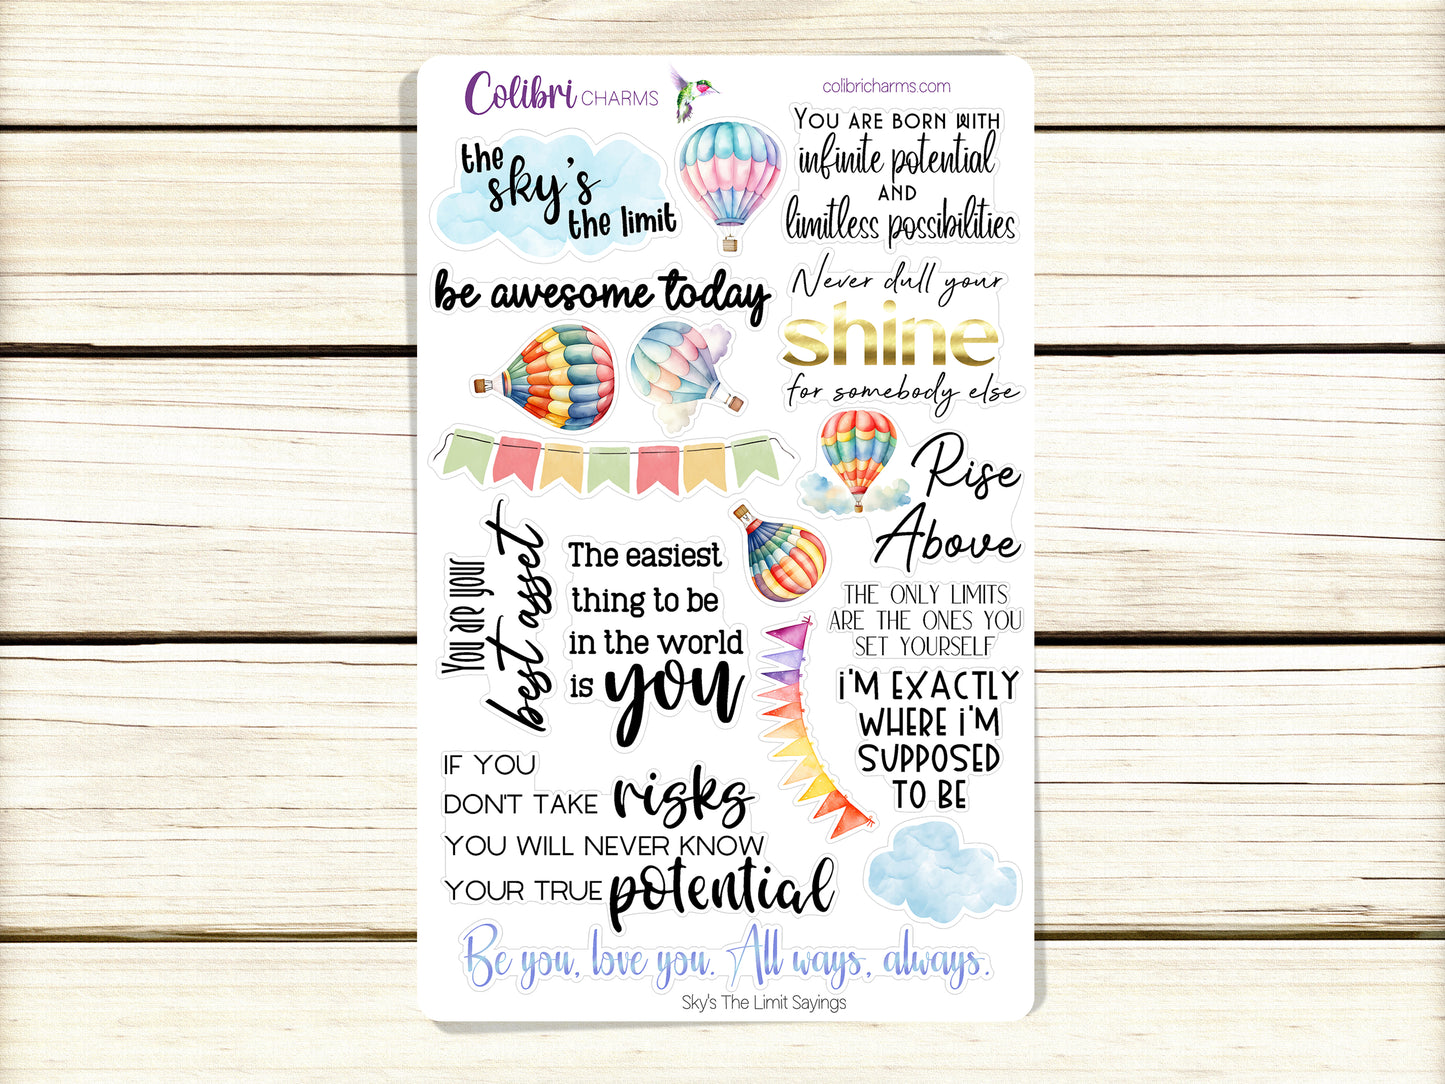 Colibri CHARMS
colibricharms.com
the
sky's
the limit
YOU ARE BORN WITH
infinite potential
AND
limitless possibilities
be awesome today
Never dull your
shine
for somebody else
Rise
Above
You are your
best asset
The easiest
thing to be
in the world
is you
THE ONLY LIMITS
ARE THE ONES YOU
SET YOURSELF
i'M EXACTLY
WHERE i'M
SUPPOSED
TO BE
IF YOU
DON'T TAKE risks
YOU WILL NEVER KNOW
YOUR TRUE potential
Be you, love you. All ways, always.
Sky's The Limit Sayings